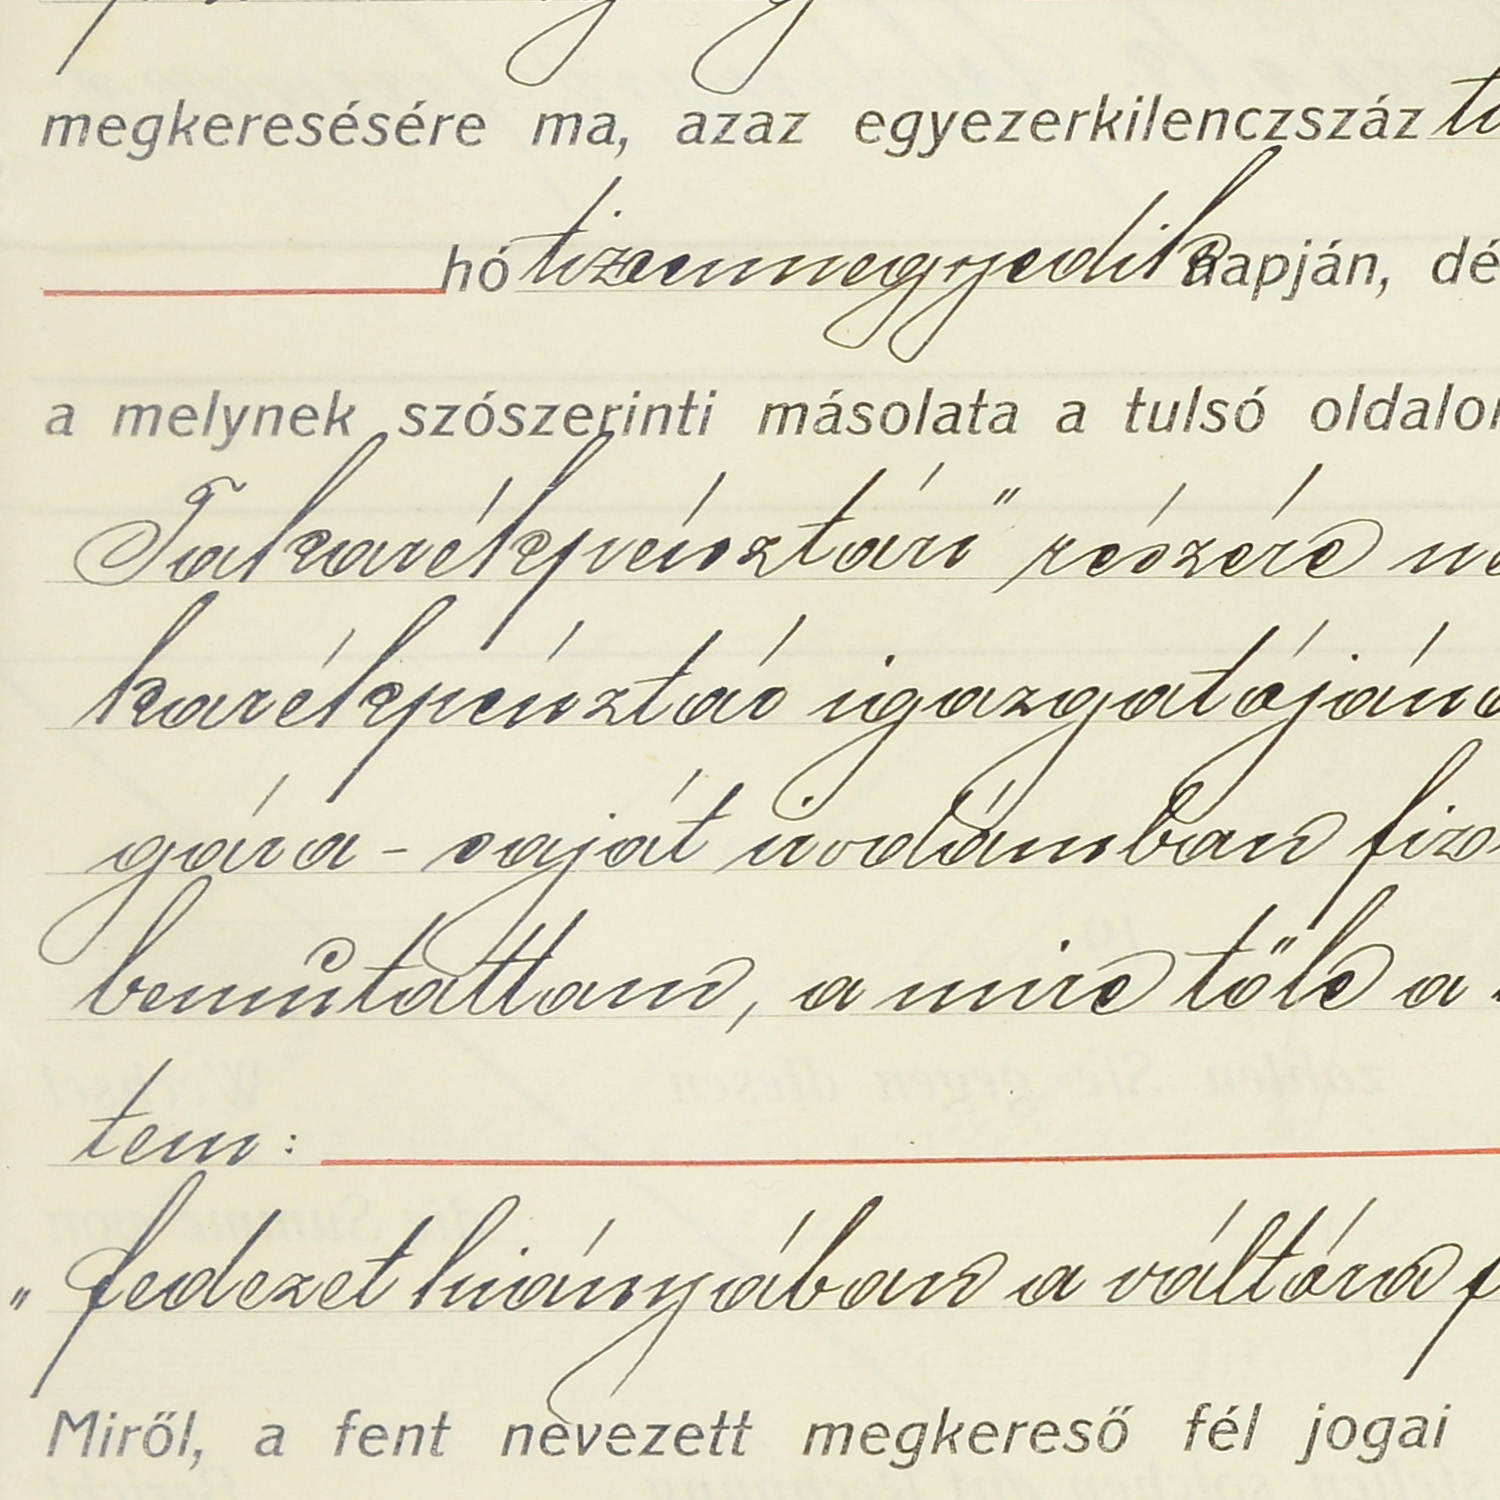 megkeresésére ma, azaz egyezerkilenczszáz
hó tizennegyedik napján, dé
a melynek szószerinti másolata a tulsó oldalon
Takarékpénztári" részére
karékpénztár igazgatójána
gára - saját irodámban fiz
bemutattam, a mire tőle a
tem:
„fedezet hiányában a váltóra f
Miről, a fent nevezett megkereső fél jogai